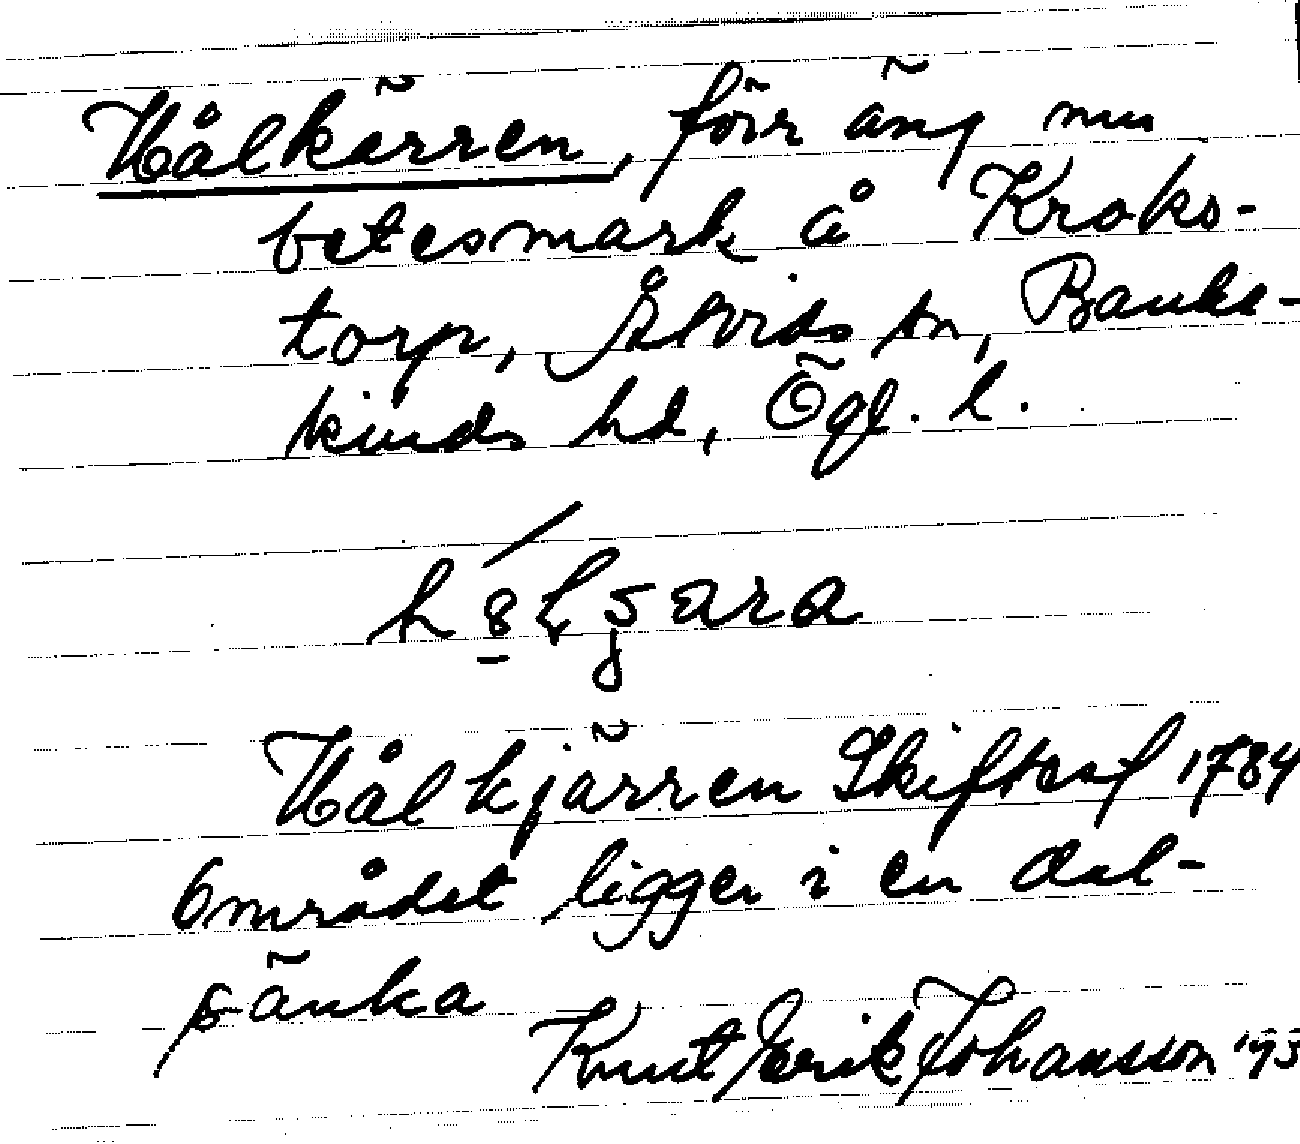 Hålkärren, förr äng nu
betesmark å Kroks-
torp, Åtvids sn, Banke-
kinds hd, Ögl. l.
Hålkjärren Skiftesf 1784
Området ligger i en dal-
sänka
Knut Erik Johansson '93